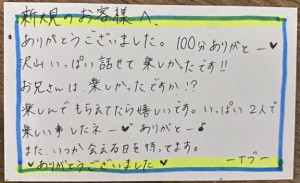 新大見のお客様へ
ありがとうございました。100分ありがと ー♥
沢山いっぱい話せて楽しかったです!!
お兄さんは楽しかったですか!?
楽しんでもらえてたら嬉しいです。いっぱい2人で
楽しい事したネー♥ ありがとー♪
また、いつか会える日を待ってます。
♥ありがとうございました♥ ーイブー